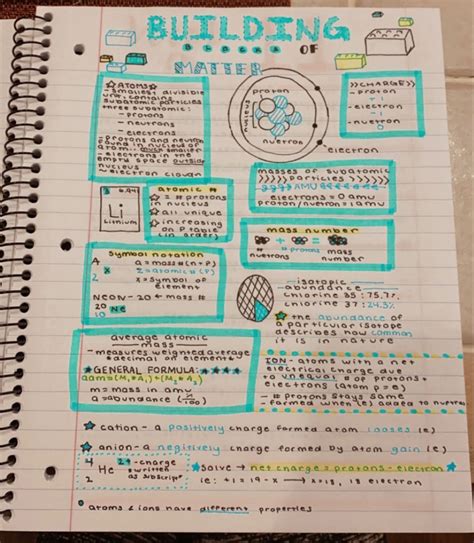 BUILDING
BLOCKS OF
MATTER
☆ATOMS☆
- smallest divisible
unit; contains
subatomic particles
three subatomic:
- protons
- nuetrons
- electrons
- protons and neutron
found in nucleus of
atom; much smaller
- electrons in the
empty space outside
nucleus
- electron cloud
proton
nucleus
nuetron
electron
>>CHARGE>>
- proton
+1
- electron
-1
- nuetron
0
masses of subatomic
>>>>> particles >>>>>
AMU
electrons = 0 amu
proton/nuetron = 1 amu
3 6.941
Li
Lithium
atomic #
☆ = # protons
in nucleus
☆ all unique
☆ increasing
on P table
(in order)
mass number
+ =
# nuetrons
# protons
mass number
symbol notation
A a = mass # (n+P)
X
Z Z = atomic # (P)
X = symbol of
element
NEON - 20 ← mass #
20 Ne
10
- isotopic
abundance
chlorine 35: 75.7%
chlorine 37: 24.3%
★ the abundance of
a particular isotope
describes how common
it is in nature
average atomic
mass
- measures weighted average
+ decimal of elements
★GENERAL FORMULA: ★★★★
aam = (M₁*A₁)+(M₂*A₂)
m = mass in amu
a = abundance (%/100)
ION - atoms with a net
electrical charge due
to unequal # of protons +
electrons (atom p = e)
- # protons stays same
- formed when (e) added to nuetral
★ cation - a positively charge formed atom looses (e)
★ anion - a negitively charge formed by atom gain (e)
4 He 2+ - charge
2
written
as subscript
★ solve → net charge = protons - electron
ie: +1 = 19 - x → x = 18, 18 electron
• atoms & ions have different properties